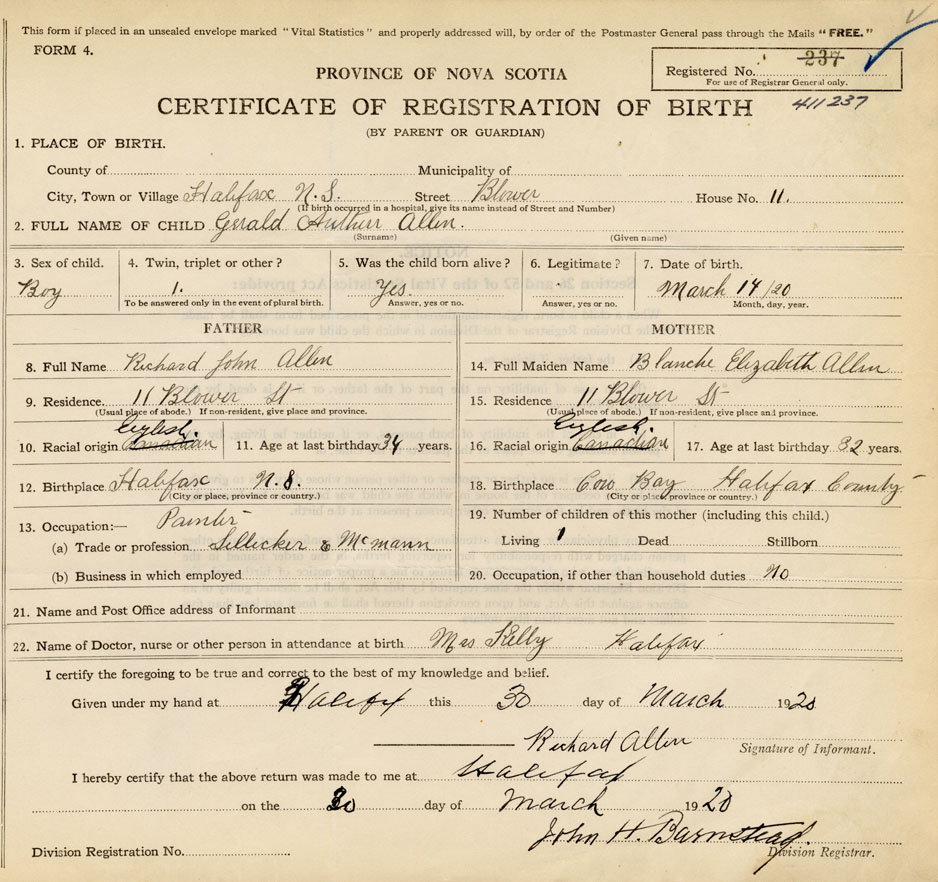 This form if placed in an unsealed envelope marked "Vital Statistics" and properly addressed will, by order of the Postmaster General pass through the Mails "FREE."
FORM 4.
Registered No. 237
For use of Registrar General only.
PROVINCE OF NOVA SCOTIA
CERTIFICATE OF REGISTRATION OF BIRTH 411237
(BY PARENT OR GUARDIAN)
1. PLACE OF BIRTH.
County of Municipality of
City, Town or Village Halifax N.S. Street Blower House No. 11.
(If birth occurred in a hospital, give its name instead of Street and Number)
2. FULL NAME OF CHILD Gerald Arthur Allen.
(Surname) (Given name)
3. Sex of child. 4. Twin, triplet or other? 5. Was the child born alive? 6. Legitimate? 7. Date of birth.
Boy 1. Yes. March 14/20
To be answered only in the event of plural birth. Answer, yes or no. Answer, yes or no. Month, day, year.
FATHER MOTHER
8. Full Name Richard John Allen 14. Full Maiden Name Blanche Elizabeth Allen
9. Residence. 11 Blower St 15. Residence 11 Blower St
(Usual place of abode.) If non-resident, give place and province. (Usual place of abode.) If non-resident, give place and province.
English. English.
10. Racial origin Canadian 11. Age at last birthday 34 years. 16. Racial origin Canadian 17. Age at last birthday 32 years.
12. Birthplace Halifax N.S. 18. Birthplace Cow Bay Halifax County
(City or place, province or country.) (City or place province or country.)
13. Occupation:— Painter 19. Number of children of this mother (including this child.)
(a) Trade or profession & McMann Living 1 Dead Stillborn
(b) Business in which employed 20. Occupation, if other than household duties No
21. Name and Post Office address of Informant
22. Name of Doctor, nurse or other person in attendance at birth Mrs Kelly Halifax
I certify the foregoing to be true and correct to the best of my knowledge and belief.
Given under my hand at Halifax this 30 day of March 1920
Richard Allen Signature of Informant.
I hereby certify that the above return was made to me at Halifax
on the 30 day of March 1920
John H. Barnstead.
Division Registration No. Division Registrar.